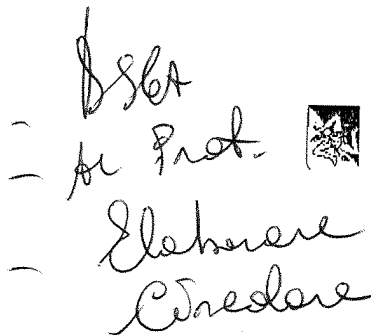 DSGA
- Al Prot.
- Elaborare
Circolare